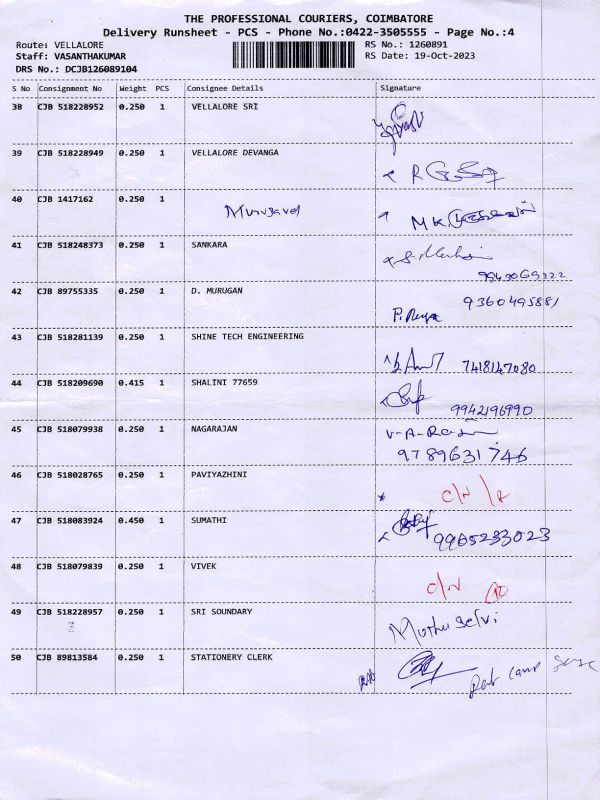 THE PROFESSIONAL COURIERS, COIMBATORE
Delivery Runsheet - PCS - Phone No.:0422-3505555 - Page No.:4
Route: VELLALORE
RS No.: 1260891
Staff: VASANTHAKUMAR
RS Date: 19-Oct-2023
DRS No.: DCJB126089104
S No Consignment No Weight PCS Consignee Details Signature
38 CJB 518228952 0.250 1 VELLALORE SRI
39 CJB 518228949 0.250 1 VELLALORE DEVANGA
R
40 CJB 1417162 0.250 1
Murugavel
M K
41 CJB 518248373 0.250 1 SANKARA
42 CJB 89755335 0.250 1 D. MURUGAN
9360495881
43 CJB 518281139 0.250 1 SHINE TECH ENGINEERING
7418147080
44 CJB 518209690 0.415 1 SHALINI 77659
9942196990
45 CJB 518079938 0.250 1 NAGARAJAN
9789631746
46 CJB 518028765 0.250 1 PAVIYAZHINI
C/N
47 CJB 518083924 0.450 1 SUMATHI
9965233023
48 CJB 518079839 0.250 1 VIVEK
C/N
49 CJB 518228957 0.250 1 SRI SOUNDARY
Muthu selvi
50 CJB 89813584 0.250 1 STATIONERY CLERK